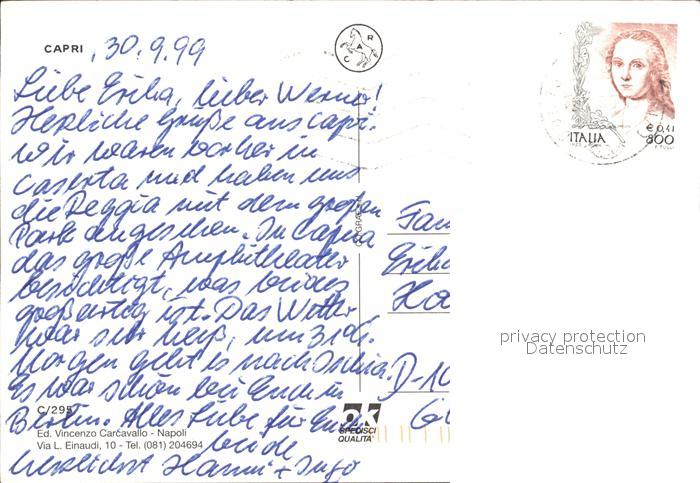 CAPRI, 30.9.99
Liebe Erika, lieber Werner!
Herzliche Grüße aus Capri.
Wir waren vorher in
Caserta und haben uns
die Reggia mit dem großen
Park angesehen. In Capua
das große Amphitheater
besichtigt, was beides
großartig ist. Das Wetter
war sehr heiß, um 30 C.
Morgen geht es nach Ischia.
Es war schön bei Euch in
Berlin. Alles Liebe für Euch
beide
herzlichst Hanni + Ingo
C A R
ITALIA
€ 0,41
800
Fam
Erika
D-10
privacy protection
Datenschutz
C/295
OK
SPEDISCI
QUALITA'
Ed. Vincenzo Carcavallo - Napoli
Via L. Einaudi, 10 - Tel. (081) 204694